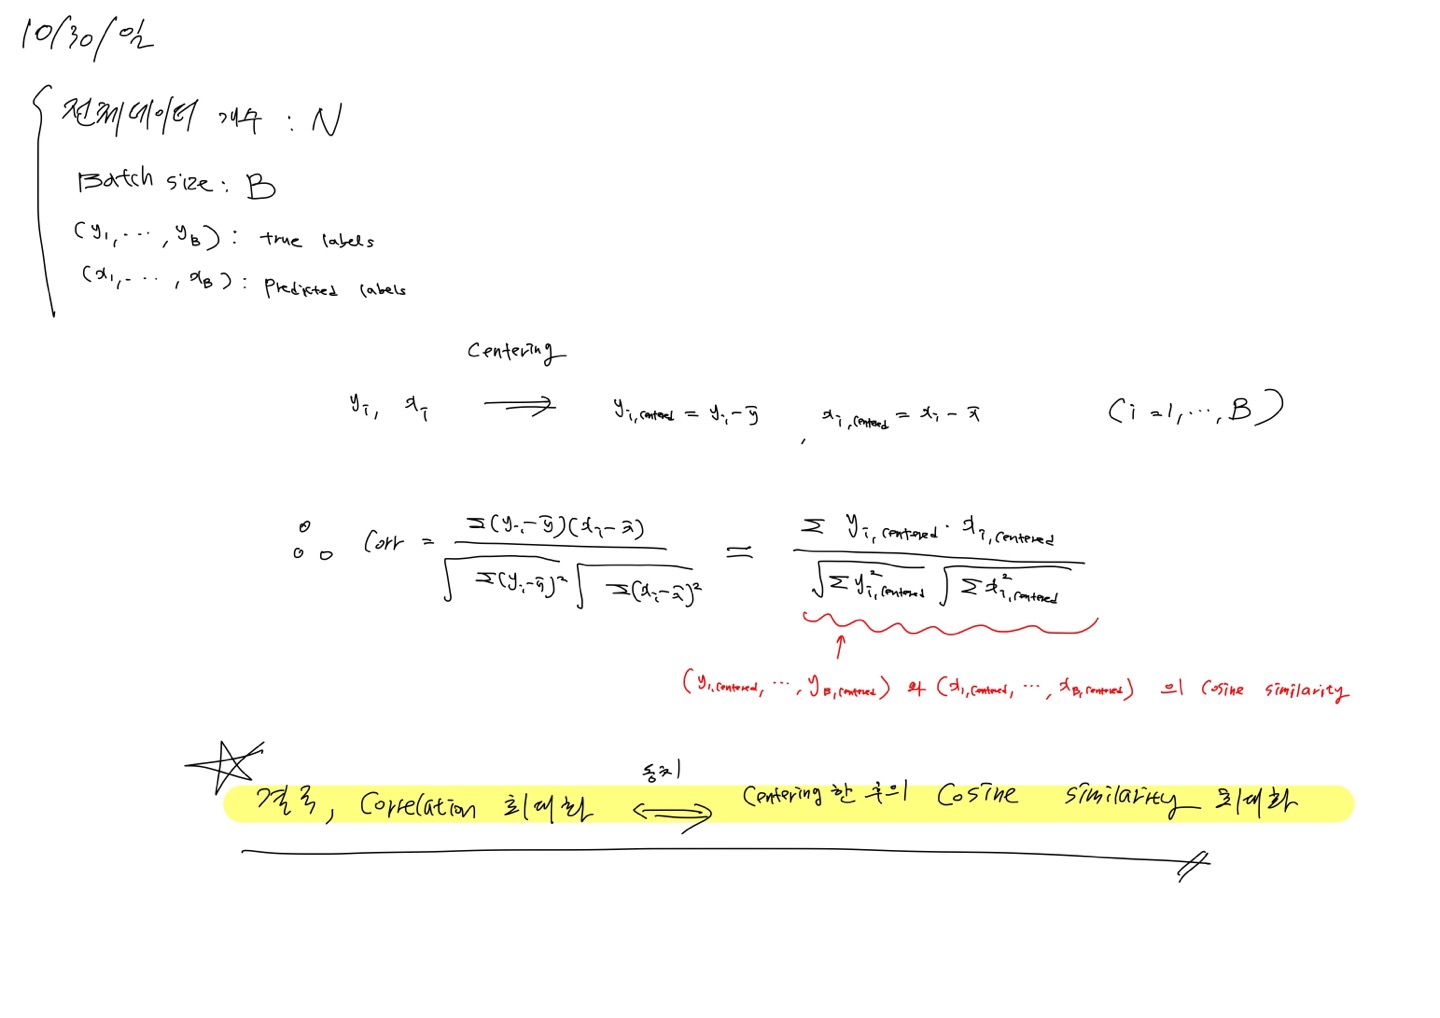 10/30/일
전체데이터 개수 : N
Batch size : B
(y₁, ⋯, y_B) : true labels
(x₁, ⋯, x_B) : predicted labels
Centering
y_i, x_i ⟹ y_{i,centered} = y_i - ȳ , x_{i,centered} = x_i - x̄ (i=1, ⋯, B)
∴ Corr = Σ(y_i-ȳ)(x_i-x̄) / √Σ(y_i-ȳ)² √Σ(x_i-x̄)² = Σ y_{i,centered} · x_{i,centered} / √Σ y²_{i,centered} √Σ x²_{i,centered}
↑
(y_{1,centered}, ⋯, y_{B,centered}) 와 (x_{1,centered}, ⋯, x_{B,centered}) 의 cosine similarity
동치
결국, Correlation 최대화 ⟺ Centering한 후의 Cosine similarity 최대화